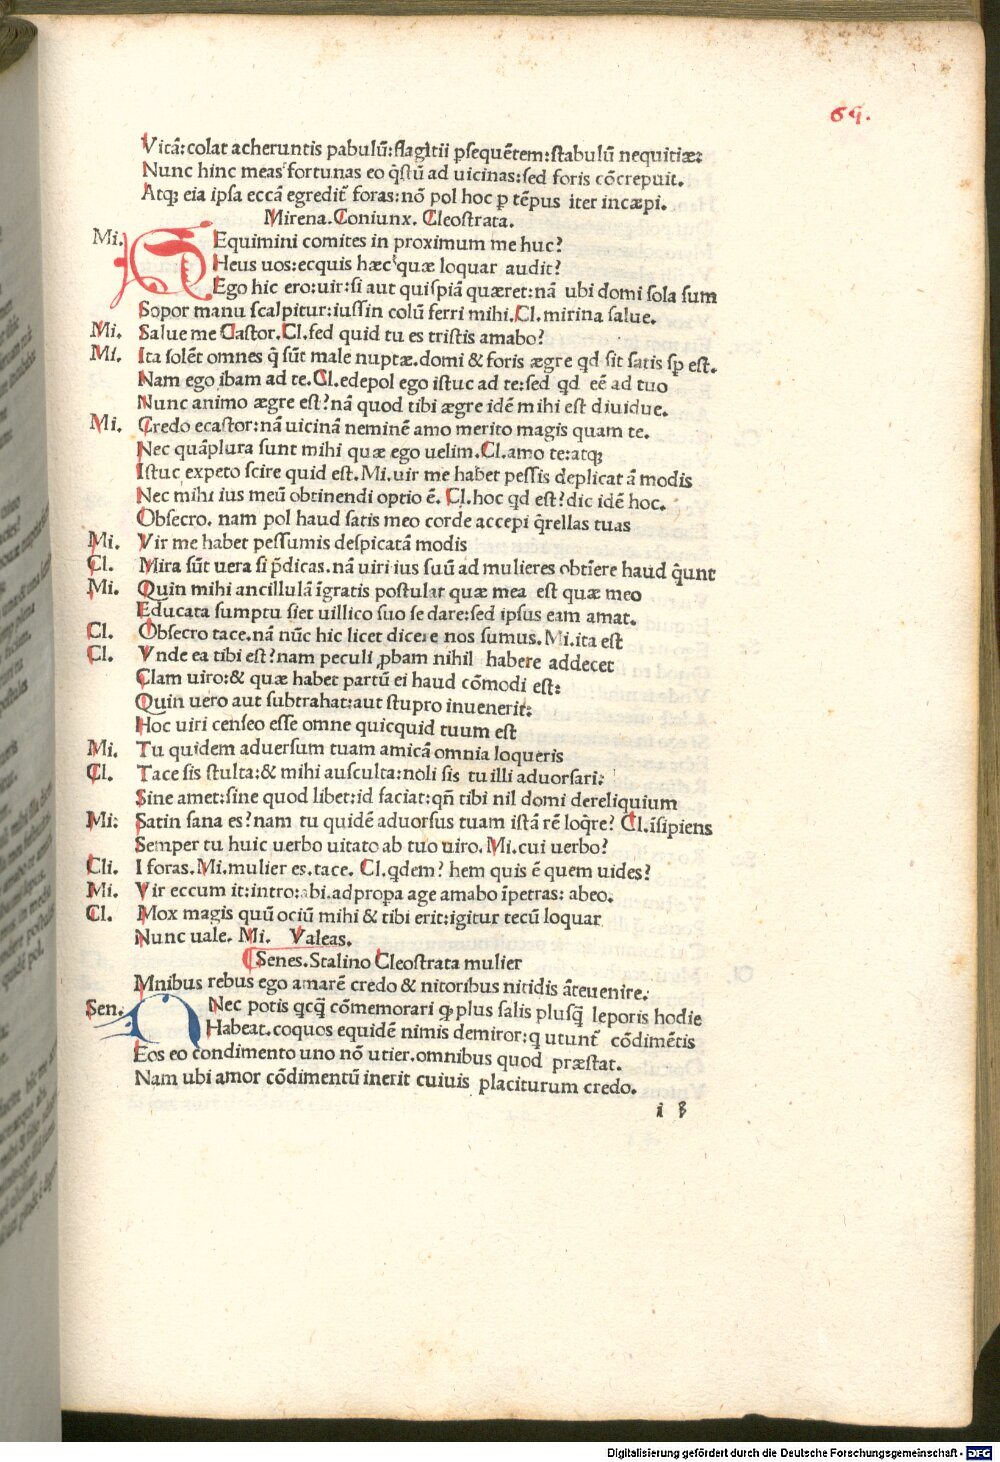 64.
Vitā:colat acheruntis pabulū:flagitii ꝑsequētem:stabulū nequitiæ:
Nunc hinc meas fortunas eo q̄stū ad uicinas:sed foris cōcrepuit.
Atq; eia ipsa eccā egredit̃ foras:nō pol hoc ꝑ tēpus iter incæpi.
Mirena.Coniunx. Cleostrata.
Mi. SEquimini comites in proximum me huc?
Heus uos:ecquis hæc quæ loquar audit?
Ego hic ero:uir:si aut quispiā quæret:nā ubi domi sola sum
Sopor manu scalpitur:iussin colū ferri mihi.Cl.mirina salue.
Mi. Salue me Castor.Cl.sed quid tu es tristis amabo?
Mi. Ita solēt omnes q̄ sūt male nuptæ.domi & foris ægre qd sit satis sp est.
Nam ego ibam ad te.Cl.edepol ego istuc ad te:sed qd eē ad tuo
Nunc animo ægre est?nā quod tibi ægre idē mihi est diuidue.
Mi. Credo ecastor:nā uicinā neminē amo merito magis quam te.
Nec quāplura sunt mihi quæ ego uelim.Cl.amo te:atq;
Istuc expeto scire quid est.Mi.uir me habet pessis deplicatā modis
Nec mihi ius meū obtinendi optio ē. Cl.hoc qd est?dic idē hoc.
Obsecro. nam pol haud satis meo corde accepi q̄rellas tuas
Mi. Vir me habet pessumis despicatā modis
Cl. Mira sūt uera si p̄dicas.nā uiri ius suū ad mulieres obtīere haud q̄unt
Mi. Quin mihi ancillulā īgratis postulat quæ mea est quæ meo
Educata sumptu siet uillico suo se dare:sed ipsus eam amat.
Cl. Obsecro tace.nā nūc hic licet dicere nos sumus.Mi.ita est
Cl. Vnde ea tibi est?nam peculi ꝓbam nihil habere addecet
Clam uiro:& quæ habet partū ei haud cōmodi est:
Quin uero aut subtrahat:aut stupro inuenerit:
Hoc uiri censeo esse omne quicquid tuum est
Mi. Tu quidem aduersum tuam amicā omnia loqueris
Cl. Tace sis stulta:& mihi ausculta:noli sis tu illi aduorsari:
Sine amet:sine quod libet:id faciat:qn̄ tibi nil domi dereliquium
Mi: Satin sana es?nam tu quidē aduorsus tuam istā rē loq̄re? Cl.īsipiens
Semper tu huic uerbo uitato ab tuo uiro.Mi.cui uerbo?
Cli. I foras.Mi.mulier es.tace. Cl.qdem? hem quis ē quem uides?
Mi. Vir eccum it:intro:abi.adpropa age amabo īpetras: abeo.
Cl. Mox magis quū ociū mihi & tibi erit:igitur tecū loquar
Nunc uale. Mi. Valeas.
Senes.Stalino Cleostrata mulier
Sen. OMnibus rebus ego amarē credo & nitoribus nitidis āteuenire:
Nec potis qcq̄ cōmemorari ꝙ plus salis plusq̄ leporis hodie
Habeat.coquos equidē nimis demiror:q utunt̃ cōdimētis
Eos eo condimento uno nō utier.omnibus quod præstat.
Nam ubi amor cōdimentū inerit cuiuis placiturum credo.
i 8
Digitalisierung gefördert durch die Deutsche Forschungsgemeinschaft - DFG